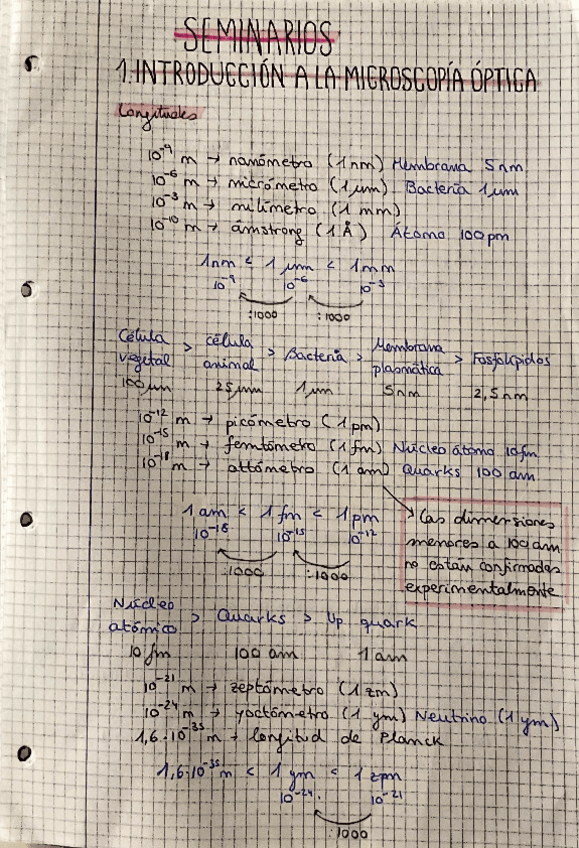 SEMINARIOS
1. INTRODUCCIÓN A LA MICROSCOPÍA ÓPTICA
Longitudes
10⁻⁹ m → nanómetro (1 nm) Membrana 5nm
10⁻⁶ m → micrómetro (1 μm) Bacteria 1 μm
10⁻³ m → milímetro (1 mm)
10⁻¹⁰ m → amstrong (1 Å) Átomo 100 pm
1nm < 1 μm < 1mm
10⁻⁹ 10⁻⁶ 10⁻³
:1000 :1000
Célula vegetal > célula animal > Bacteria > Membrana plasmática > Fosfolípidos
100 μm 25 μm 1 μm 5nm 2,5nm
10⁻¹² m → picómetro (1 pm)
10⁻¹⁵ m → femtómetro (1 fm) Núcleo átomo 10 fm
10⁻¹⁸ m → attómetro (1 am) Quarks 100 am
1 am < 1 fm < 1 pm
10⁻¹⁸ 10⁻¹⁵ 10⁻¹²
:1000 :1000
Las dimensiones
menores a 100 am
no están confirmadas
experimentalmente
Núcleo atómico > Quarks > Up quark
10 fm 100 am 1 am
10⁻²¹ m → zeptómetro (1 zm)
10⁻²⁴ m → yoctómetro (1 ym) Neutrino (1 ym)
1,6·10⁻³⁵ m → longitud de Planck
1,6·10⁻³⁵ m < 1 ym < 1 zpm
10⁻²⁴ 10⁻²¹
:1000